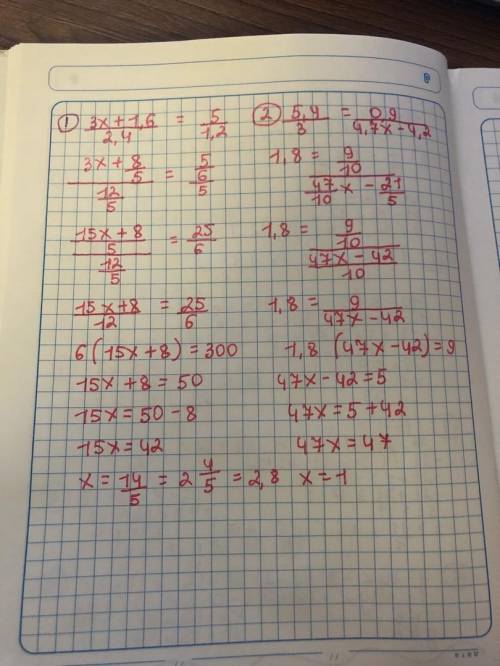 ① (3x+1,6)/2,4 = 5/1,2
(3x+8/5)/(12/5) = 5/(6/5)
((15x+8)/5)/(12/5) = 25/6
(15x+8)/12 = 25/6
6(15x+8)=300
15x+8=50
15x=50-8
15x=42
x=14/5=2 4/5=2,8
② 5,4/3 = 0,9/(4,7x-4,2)
1,8=(9/10)/(47/10 x - 21/5)
1,8=(9/10)/((47x-42)/10)
1,8=9/(47x-42)
1,8(47x-42)=9
47x-42=5
47x=5+42
47x=47
x=1